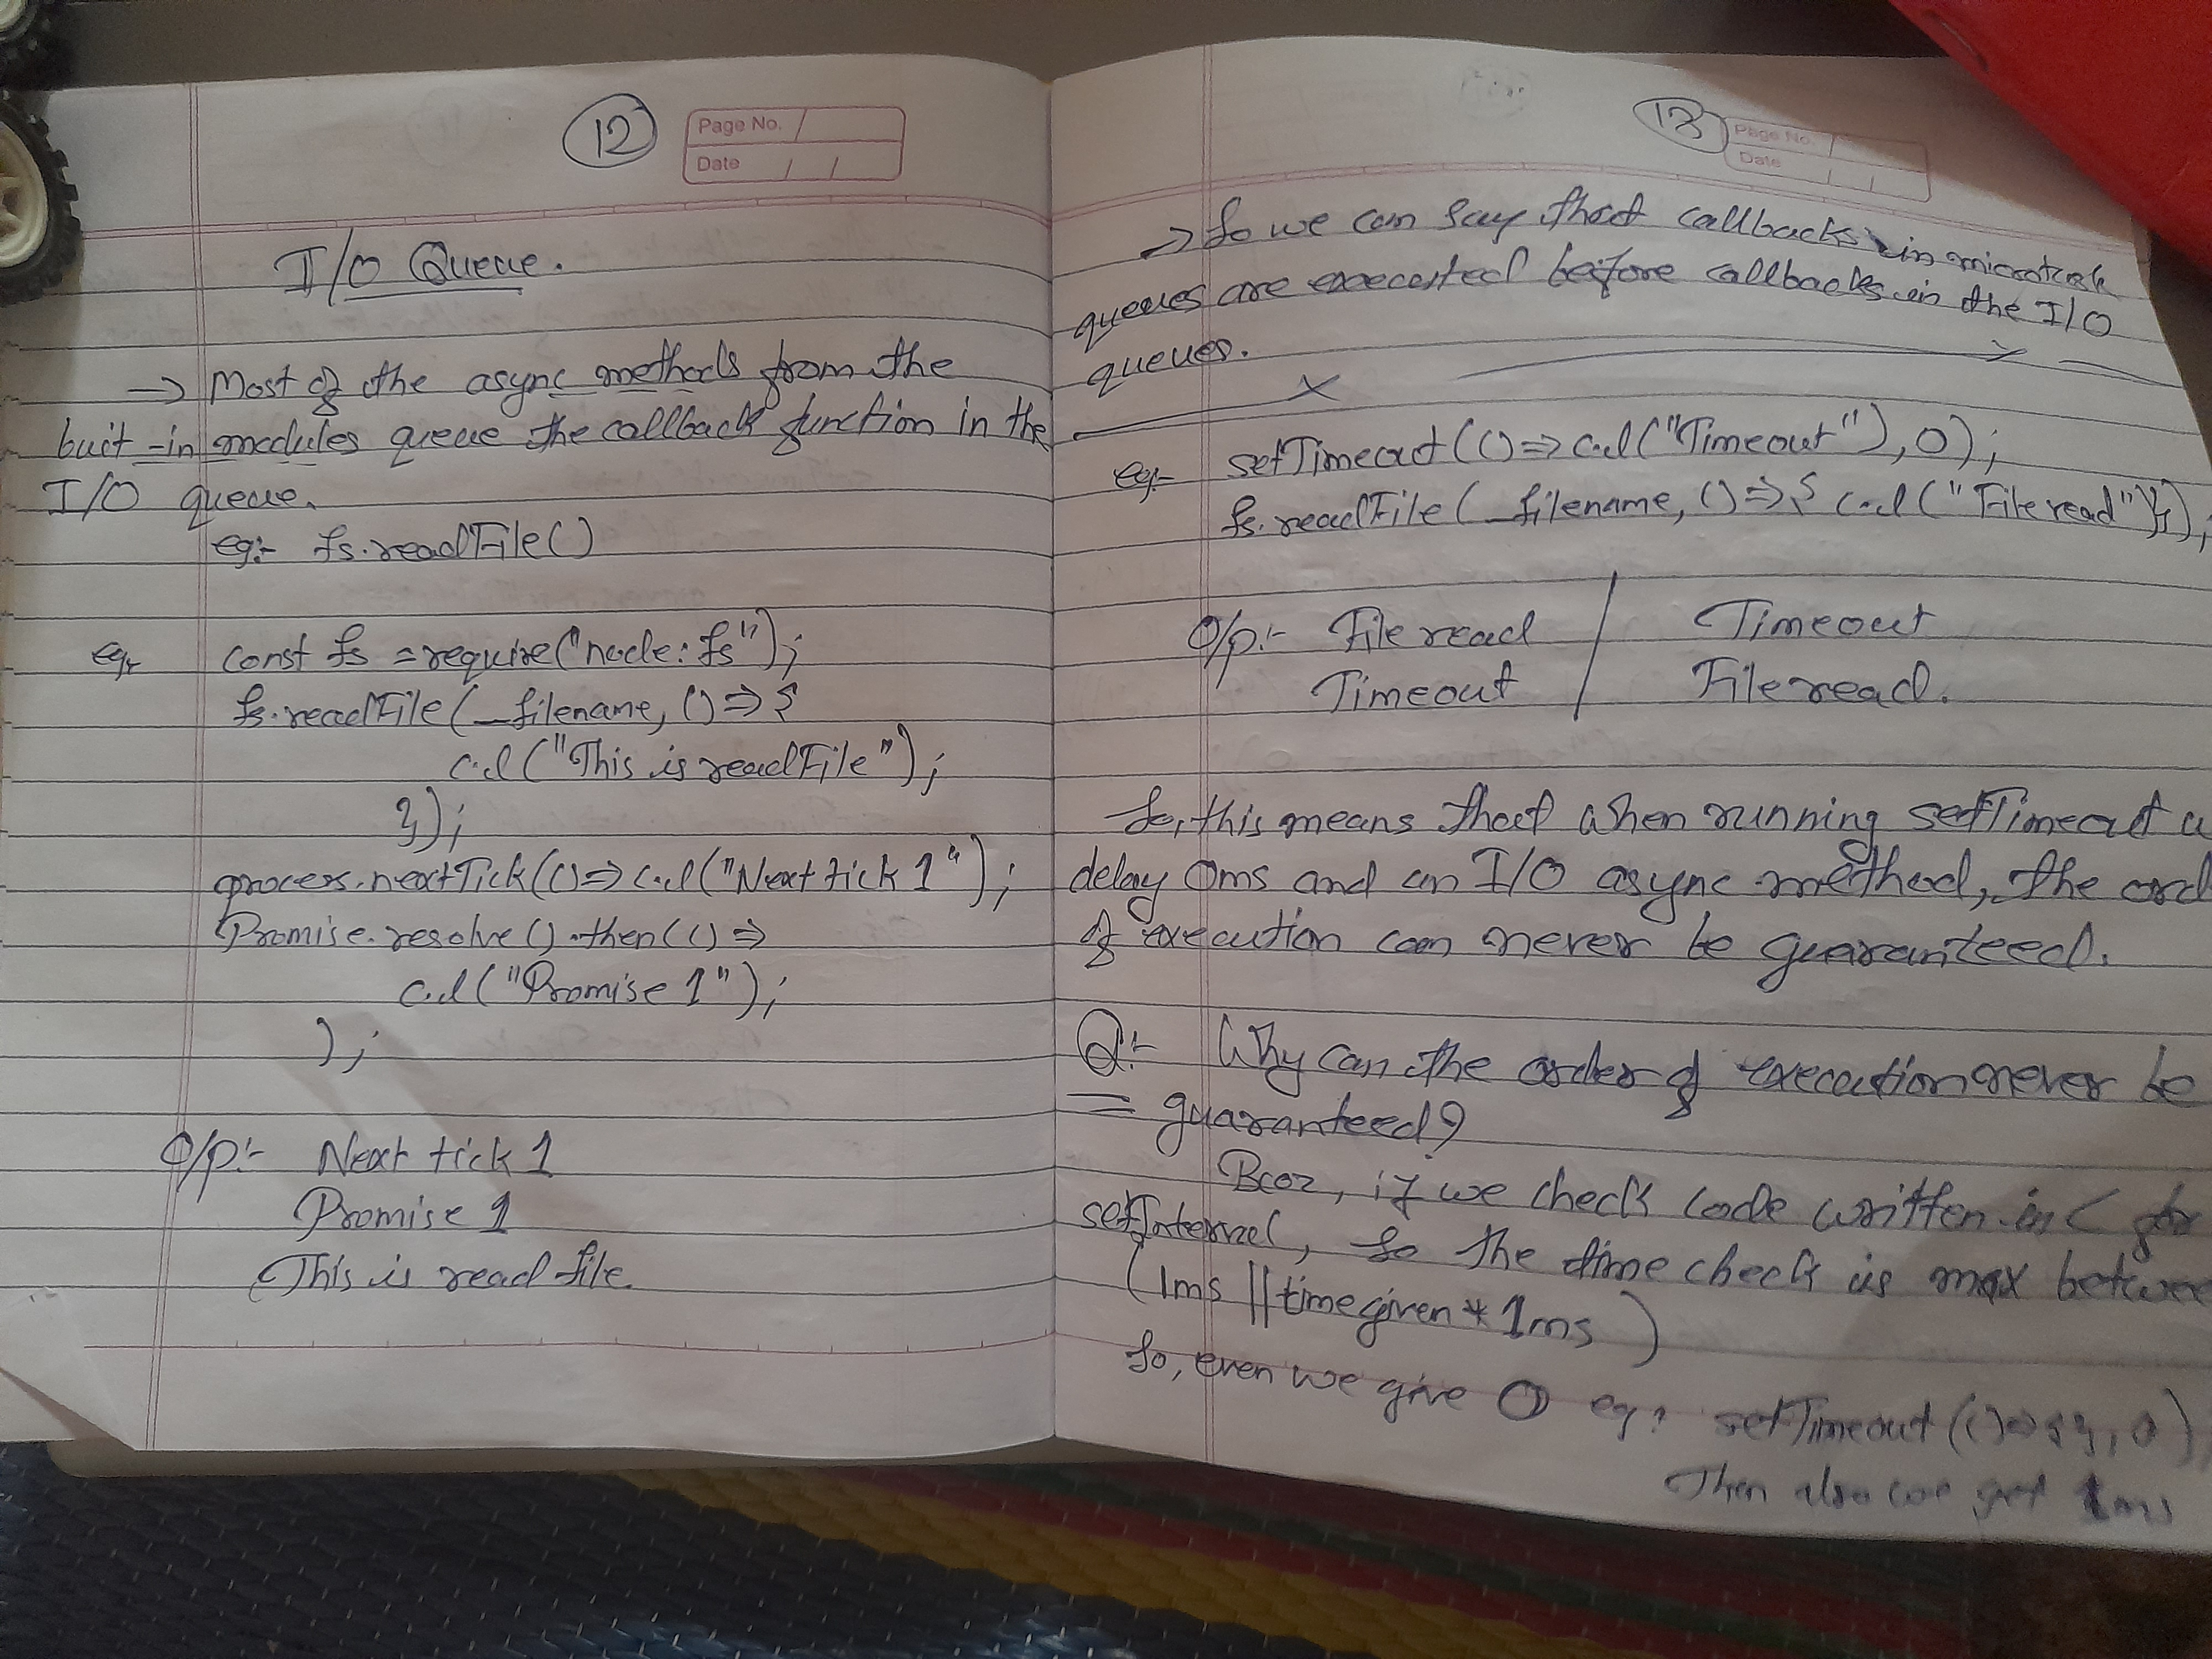 12
Page No.
Date
I/O Queue.
→ Most of the async methods from the
buit-in modules queue the callback function in the
I/O queue.
eg:- fs.readFile()
eg:- const fs = require("node:fs");
fs.readFile(_filename, () => {
c.l("This is readFile");
});
process.nextTick(() => c.l("Next tick 1");
Promise.resolve().then(() =>
c.l("Promise 1");
);
O/p:- Next tick 1
Promise 1
This is read file.
13
Page No.
Date
→ So we can say that callbacks in microtask
queues are executed before callbacks in the I/O
queues.
eg:- setTimeout(() => c.l("Timeout"), 0);
fs.readFile(_filename, () => { c.l("File read")});
O/p:- File read / Timeout
Timeout / File read.
So, this means that when running setTimeout
delay 0ms and an I/O async method, the
of execution can never be guaranteed.
Q:- Why can the order of execution never be
guaranteed?
Bcoz, if we check code written in C for
setInterval, so the time check is max
(1ms || time given * 1ms)
So, even we give 0 eg: setTimeout(() => {}, 0)
Then also we get 1ms